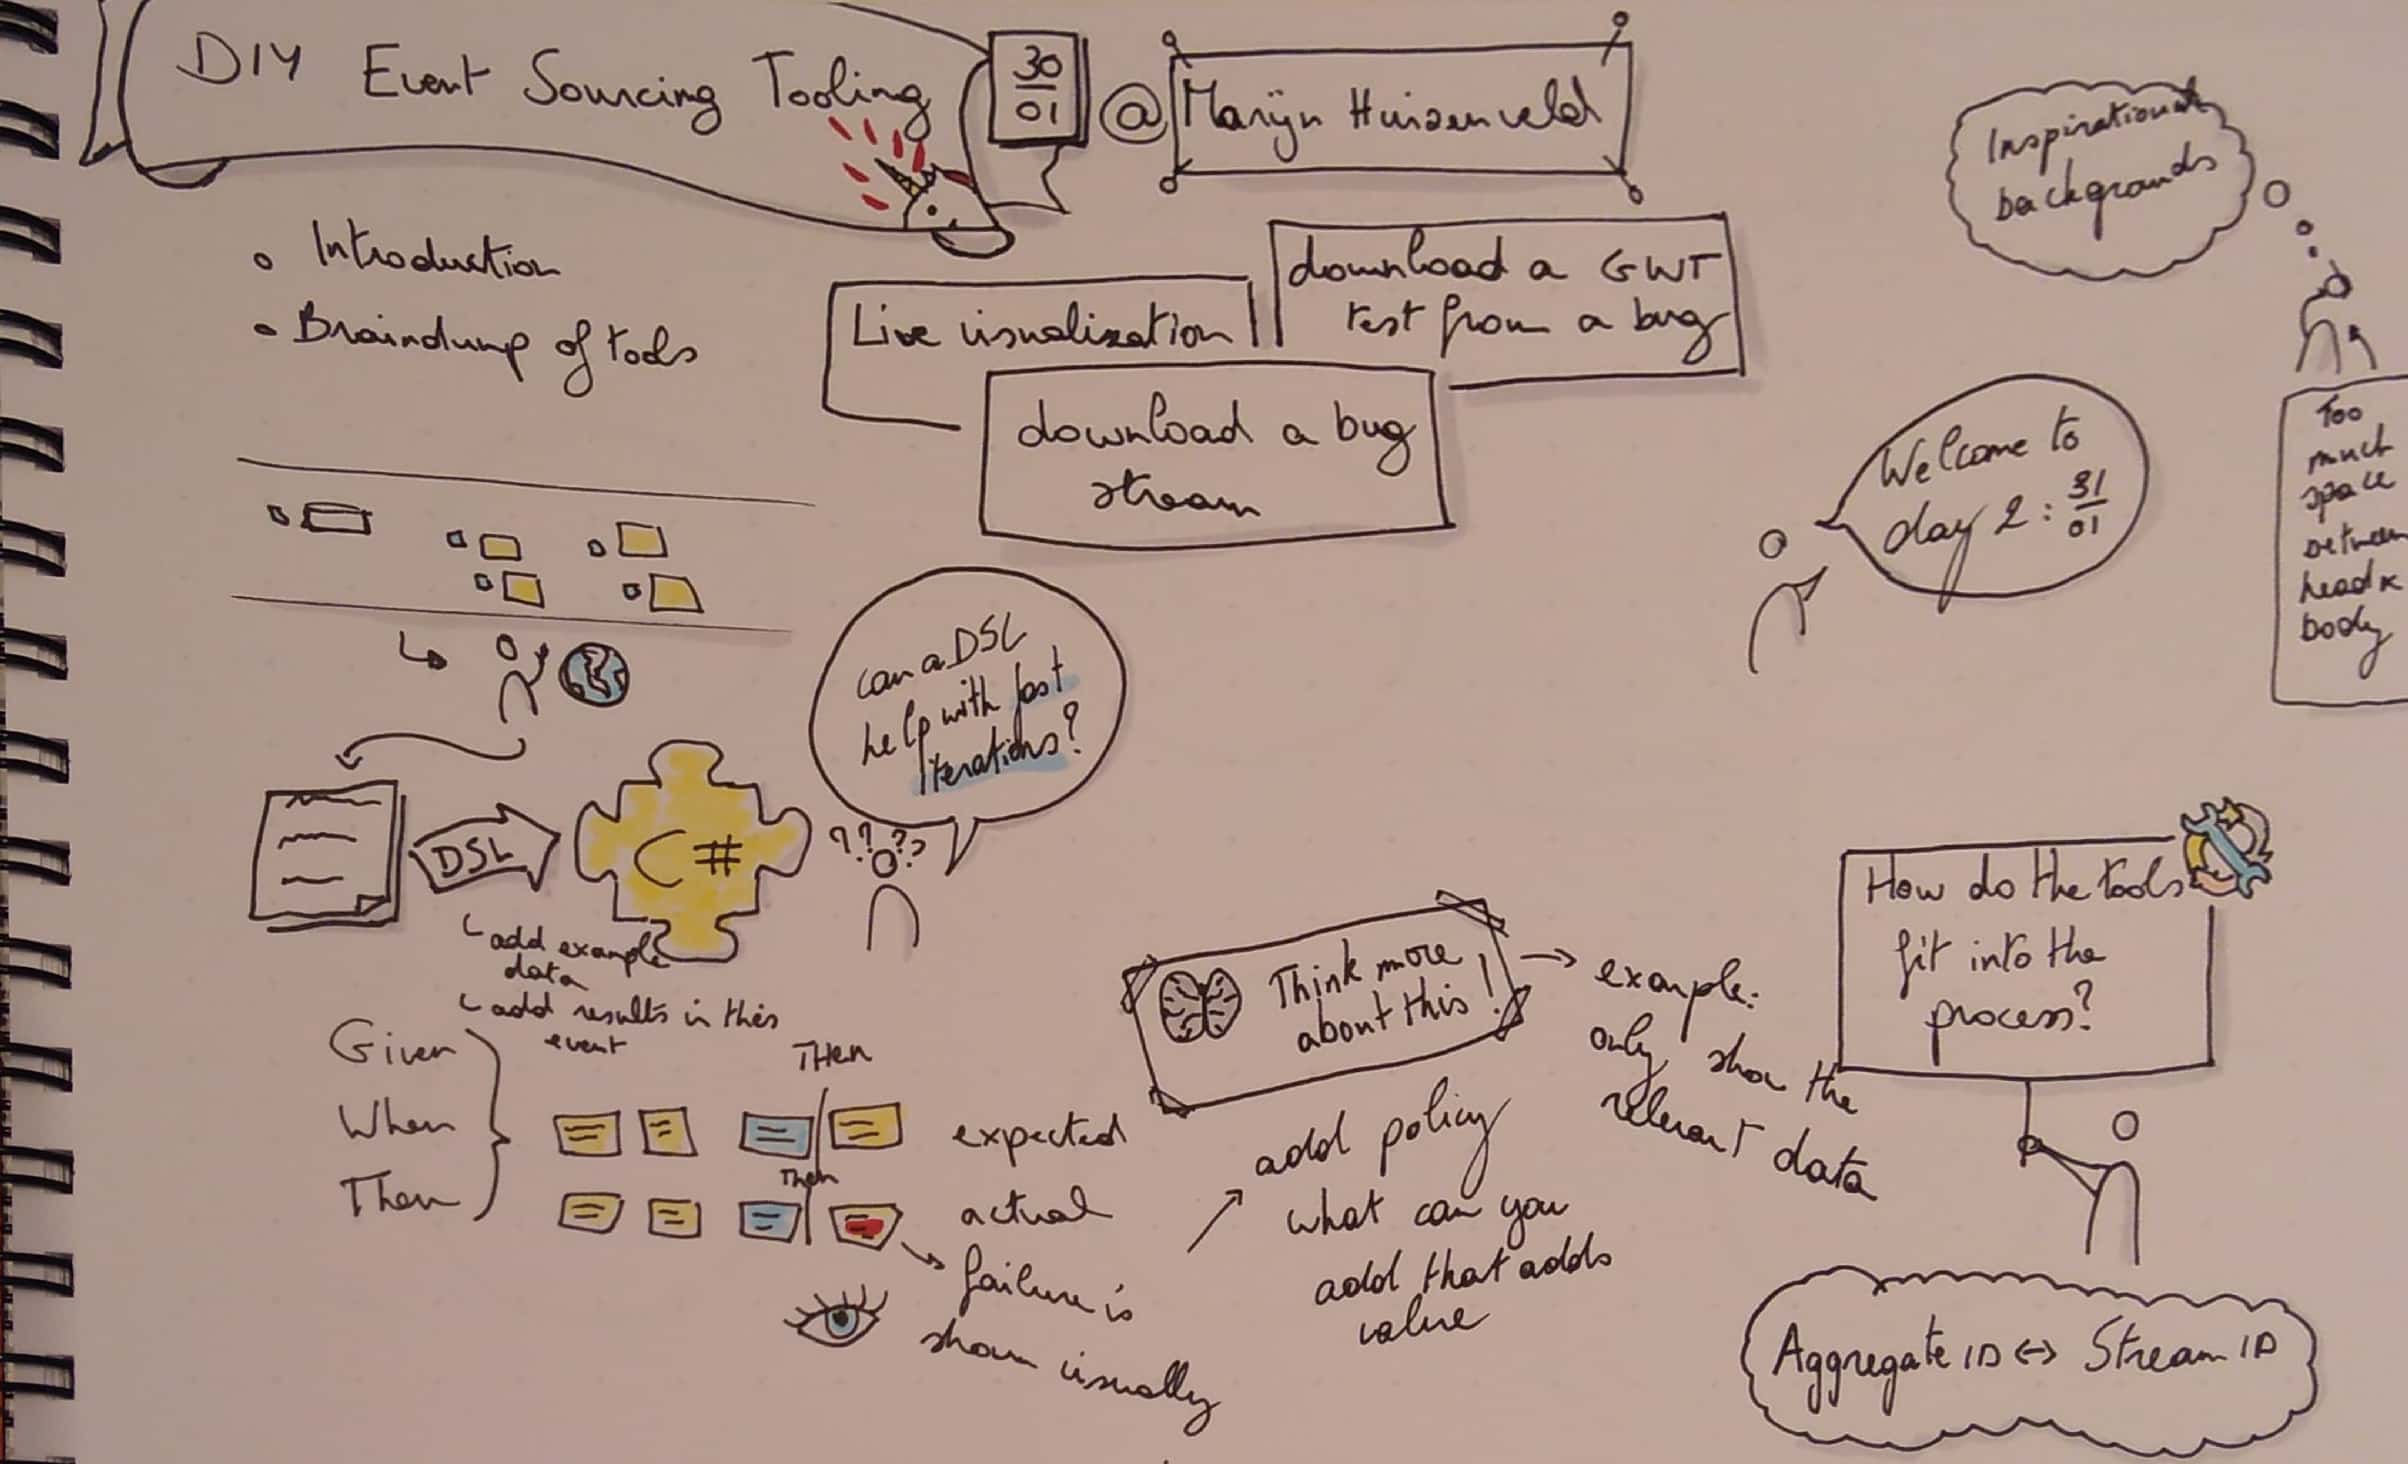 DIY Event Sourcing Tooling
30
01
@ Marijn Huizenveld
Introduction
Braindump of tools
Live visualization
download a GWT
test from a bug
download a bug
stream
Inspirational
backgrounds
Welcome to
day 2: 31
01
Too
much
space
between
head &
body
can a DSL
help with fast
iterations?
DSL
C#
????
add example
data
add results in this
event
Given
When
Then
THen
expected
Then
actual
failure is
shown visually
Think more
about this!
example:
only show the
relevant data
add policy
what can you
add that adds
value
How do the tools
fit into the
process?
Aggregate ID ↔ Stream ID